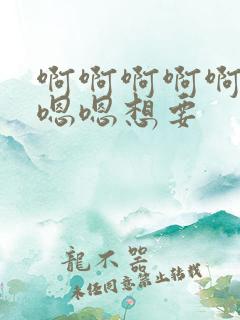 啊啊啊啊啊
嗯嗯想要
龍不器
未任同意禁止转载